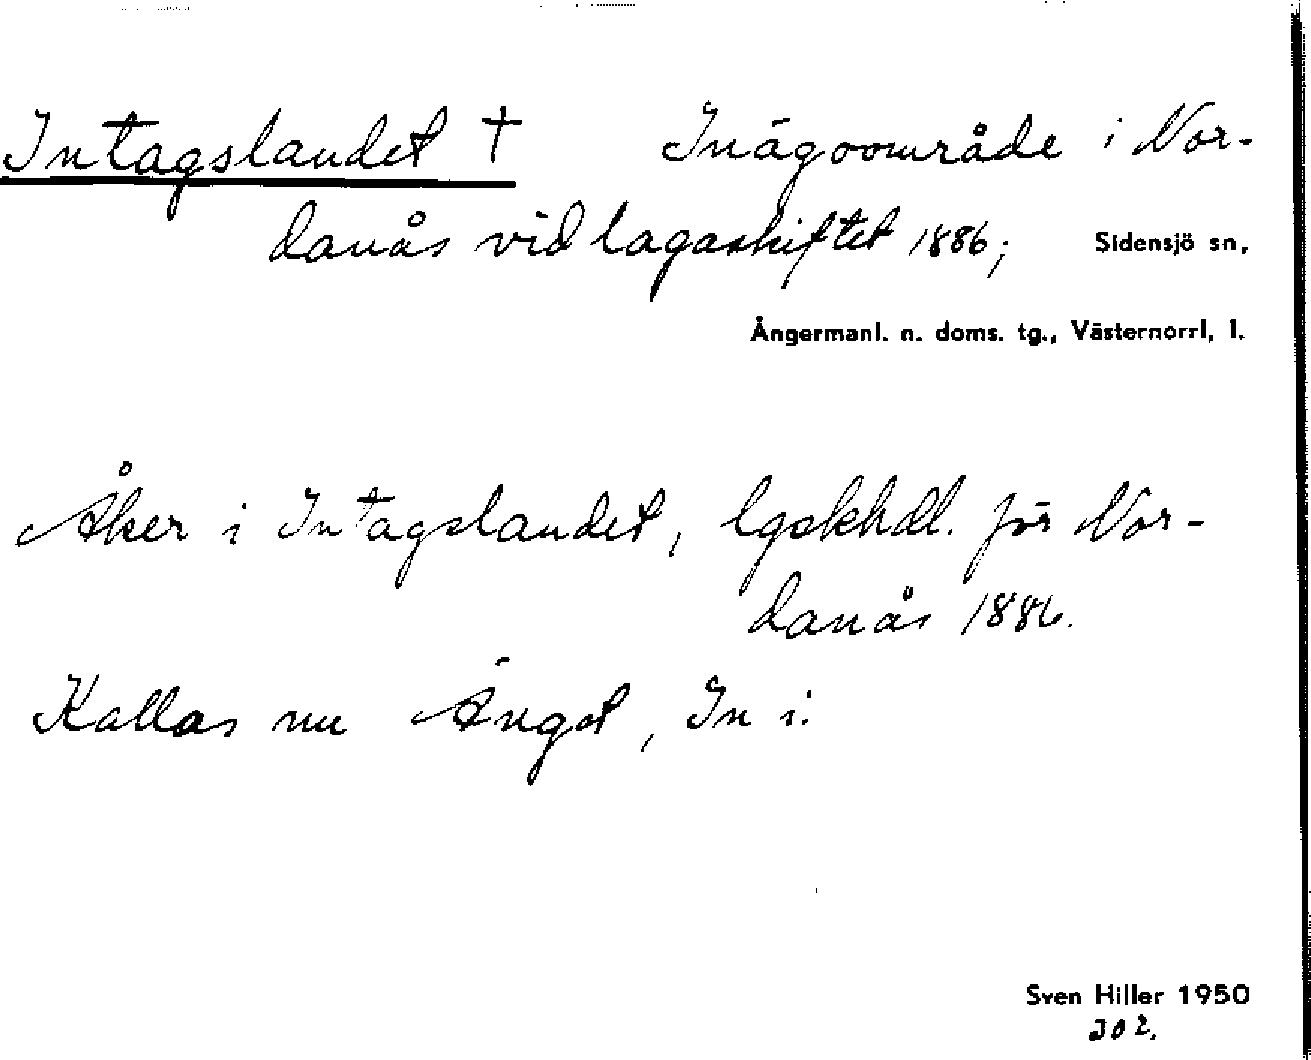 Intagslandet † Inägoområde i Nor-
danås vid lagaskiftet 1886; Sidensjö sn,
Ångermanl. n. doms. tg., Västernorrl, l.
Åker i Intagslandet, lgskhdl. för Nor-
danås 1886.
Kallas nu Änget, In i:
Sven Hiller 1950
302.